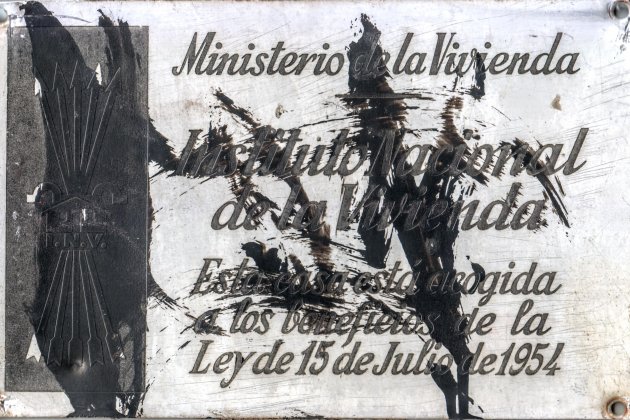 Ministerio de la Vivienda
Instituto Nacional
de la Vivienda
Esta casa esta acogida
a los beneficios de la
Ley de 15 de Julio de 1954
I.N.V.